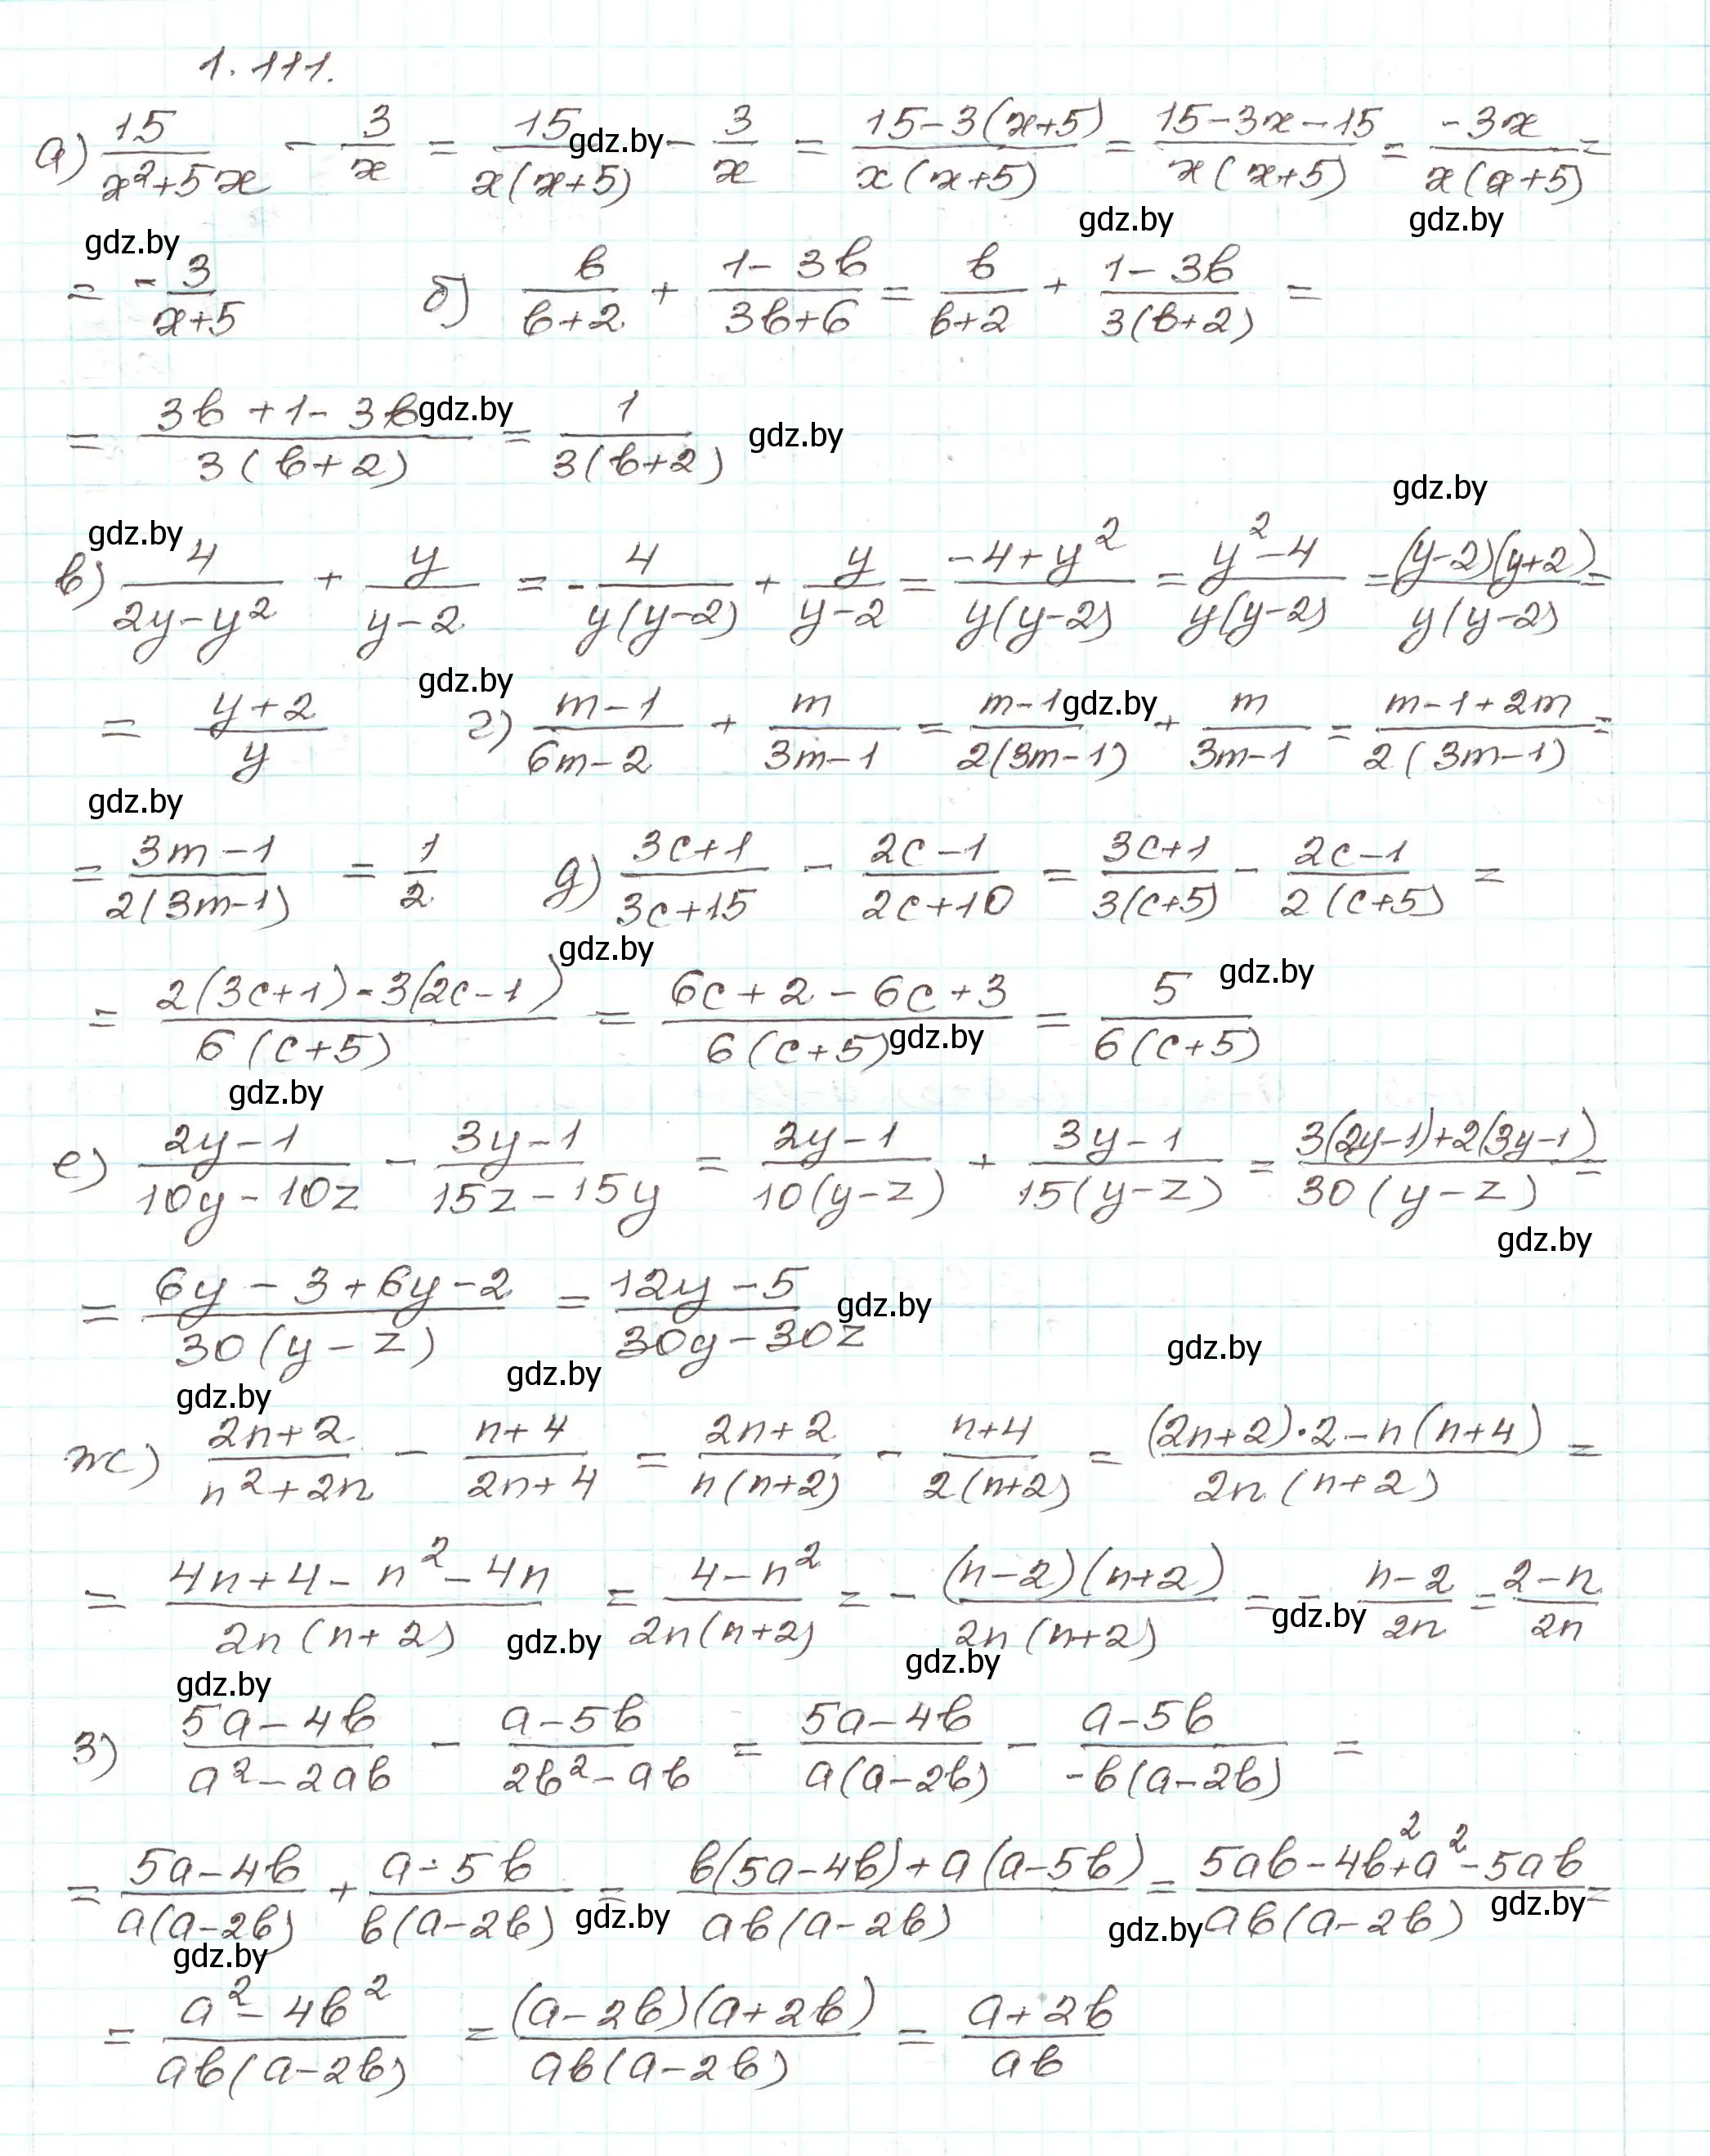 1.111.
а) 15/(x²+5x) - 3/x = 15/(x(x+5)) - 3/x = (15-3(x+5))/(x(x+5)) = (15-3x-15)/(x(x+5)) = (-3x)/(x(x+5)) =
gdz.by
gdz.by gdz.by
gdz.by
= -3/(x+5) б) b/(b+2) + (1-3b)/(3b+6) = b/(b+2) + (1-3b)/(3(b+2)) =
= (3b+1-3b)/(3(b+2)) = 1/(3(b+2))
gdz.by gdz.by
gdz.by
gdz.by
в) 4/(2y-y²) + y/(y-2) = -4/(y(y-2)) + y/(y-2) = (-4+y²)/(y(y-2)) = (y²-4)/(y(y-2)) = ((y-2)(y+2))/(y(y-2)) =
gdz.by gdz.by
= (y+2)/y г) (m-1)/(6m-2) + m/(3m-1) = (m-1)/(2(3m-1)) + m/(3m-1) = (m-1+2m)/(2(3m-1)) =
gdz.by
= (3m-1)/(2(3m-1)) = 1/2 д) (3c+1)/(3c+15) - (2c-1)/(2c+10) = (3c+1)/(3(c+5)) - (2c-1)/(2(c+5)) =
gdz.by gdz.by
= (2(3c+1)-3(2c-1))/(6(c+5)) = (6c+2-6c+3)/(6(c+5)) = 5/(6(c+5))
gdz.by
gdz.by
е) (2y-1)/(10y-10z) - (3y-1)/(15z-15y) = (2y-1)/(10(y-z)) + (3y-1)/(15(y-z)) = (3(2y-1)+2(3y-1))/(30(y-z)) =
gdz.by
= (6y-3+6y-2)/(30(y-z)) = (12y-5)/(30y-30z)
gdz.by gdz.by
gdz.by gdz.by
ж) (2n+2)/(n²+2n) - (n+4)/(2n+4) = (2n+2)/(n(n+2)) - (n+4)/(2(n+2)) = ((2n+2)·2-n(n+4))/(2n(n+2)) =
= (4n+4-n²-4n)/(2n(n+2)) = (4-n²)/(2n(n+2)) = -((n-2)(n+2))/(2n(n+2)) = -(n-2)/(2n) = (2-n)/(2n)
gdz.by gdz.by
gdz.by gdz.by
з) (5a-4b)/(a²-2ab) - (a-5b)/(2b²-ab) = (5a-4b)/(a(a-2b)) - (a-5b)/(-b(a-2b)) =
= (5a-4b)/(a(a-2b)) + (a-5b)/(b(a-2b)) = (b(5a-4b)+a(a-5b))/(ab(a-2b)) = (5ab-4b²+a²-5ab)/(ab(a-2b)) =
gdz.by gdz.by gdz.by
gdz.by
= (a²-4b²)/(ab(a-2b)) = ((a-2b)(a+2b))/(ab(a-2b)) = (a+2b)/(ab)